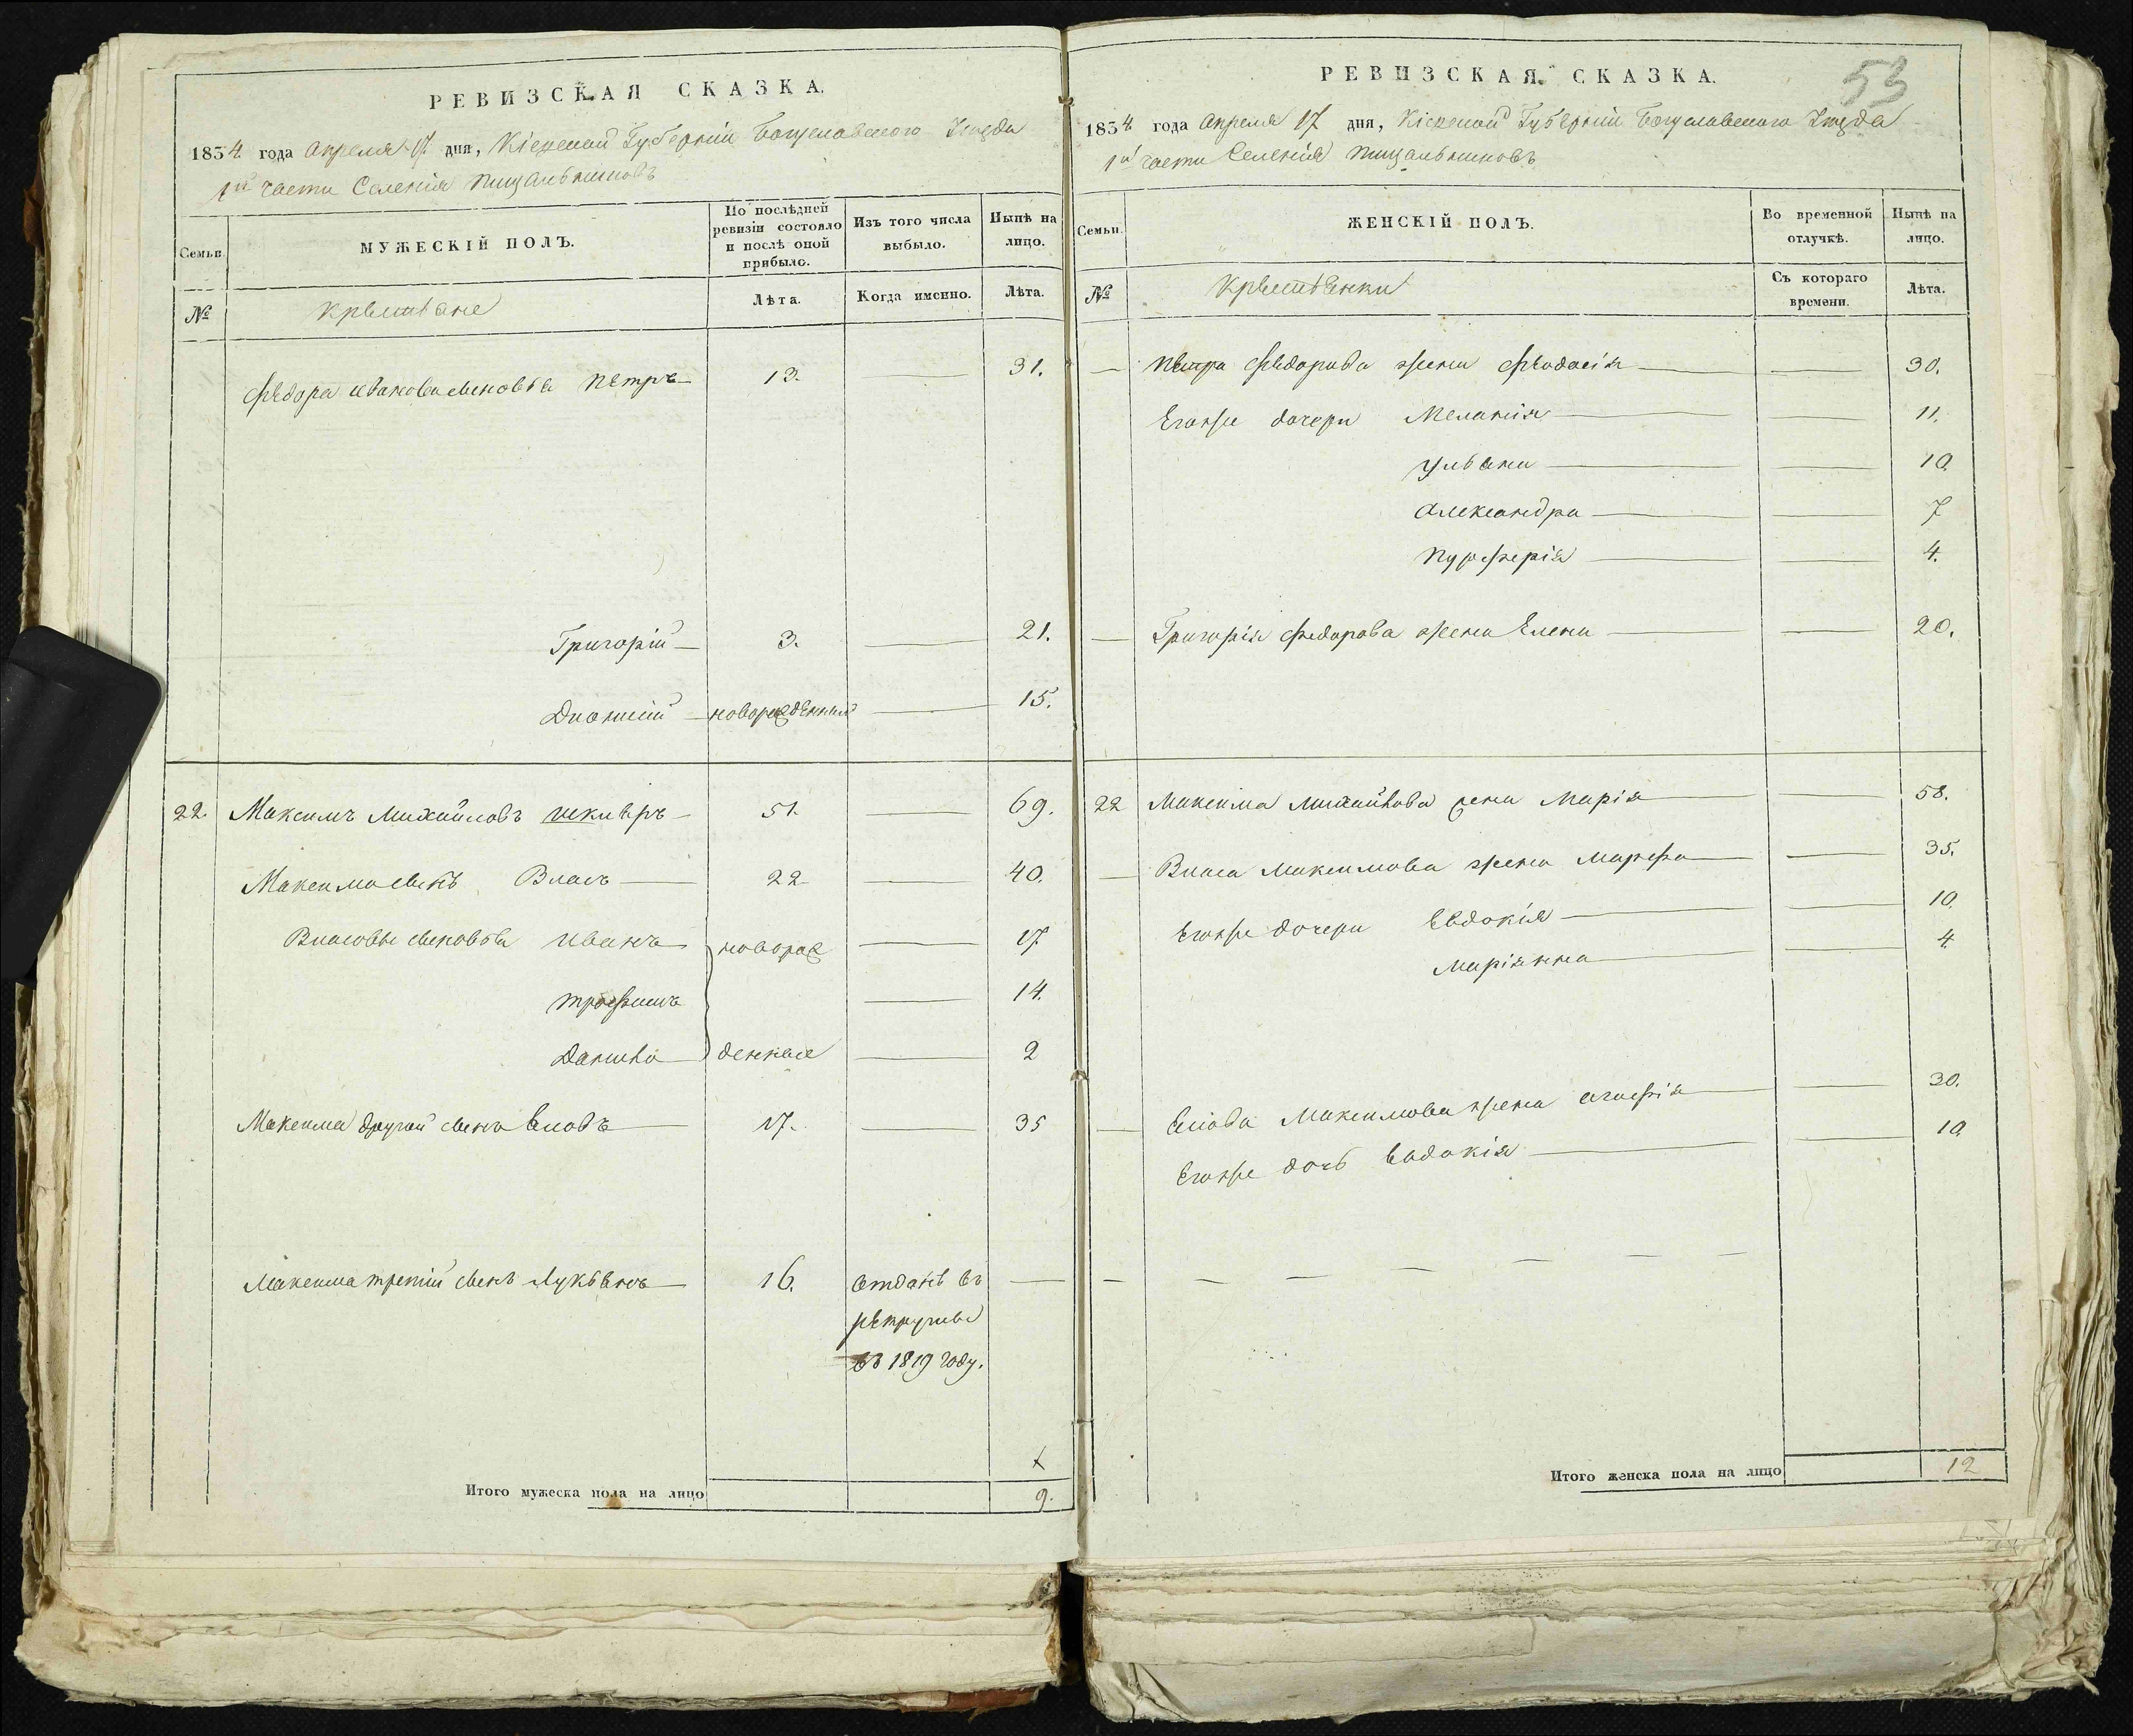 РЕВИЗСКАЯ СКАЗКА.
1834 года Апреля 17 дня, Кіевской Губерніи Богуславского Уезда
1й части Селенія Пищальниковъ
Семьи. МУЖЕСКІЙ ПОЛЪ. По послѣдней ревизіи состояло и послѣ оной прибыло. Изъ того числа выбыло. Нынѣ на лицо.
№ Крестьяне Лѣта. Когда именно. Лѣта.
Федора Иванова сыновья Петръ 13. 31.
Григорій 3. 21.
Дионисій новорожденный 15.
22. Максимъ Михайловъ 51. 69.
Максима сынъ Власъ 22 40.
Власовы сыновья Иванъ новорож 17
Трофимъ 14.
Данило денные 2
Максима другой сынъ 17. 35
Максима третій сынъ Лукьянъ 16. отданъ въ
рекруты
въ 1819 году.
Итого мужеска пола на лицо 9.
53
РЕВИЗСКАЯ СКАЗКА.
1834 года Апреля 17 дня, Кіевской Губерніи Богуславского Уезда
1й части Селенія Пищальниковъ
Семьи. ЖЕНСКІЙ ПОЛЪ. Во временной отлучкѣ. Нынѣ на лицо.
№ Крестьянки Съ котораго времени. Лѣта.
Петра Федорова жена Феодосія 30.
Егожъ дочери Меланія 11.
Ульяна 10.
Александра 7
4.
Григорія Федорова жена Елена 20.
22 Максима Михайлова жена Марія 58.
Власа Максимова жена Марфа 35.
Егоже дочери Евдокія 10.
Маріянна 4.
Максимова жена Агафія 30.
Егоже дочь Евдокія 10
Итого женска пола на лицо 12